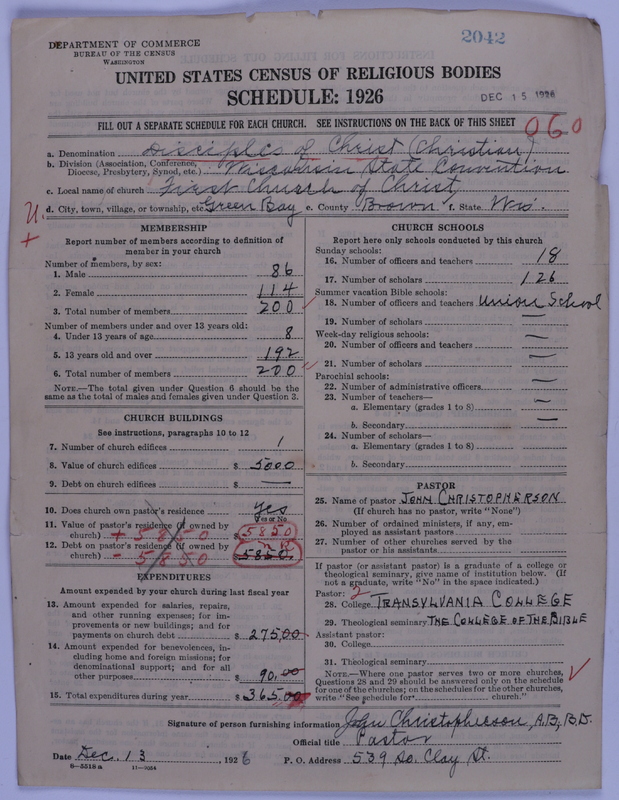 2042
DEPARTMENT OF COMMERCE
BUREAU OF THE CENSUS
WASHINGTON
UNITED STATES CENSUS OF RELIGIOUS BODIES
SCHEDULE: 1926
DEC 15 1926
FILL OUT A SEPARATE SCHEDULE FOR EACH CHURCH. SEE INSTRUCTIONS ON THE BACK OF THIS SHEET
060
a. Denomination Disciples of Christ (Christian)
b. Division (Association, Conference, Diocese, Presbytery, Synod, etc.) Wisconsin State Convention
c. Local name of church First Church of Christ
d. City, town, village, or township, etc. Green Bay e. County Brown f. State Wis.
U
+
MEMBERSHIP
Report number of members according to definition of
member in your church
Number of members, by sex:
1. Male 86
2. Female 114
3. Total number of members 200
Number of members under and over 13 years old:
4. Under 13 years of age 8
5. 13 years old and over 192
6. Total number of members 200
NOTE.—The total given under Question 6 should be
the same as the total of males and females given under Question 3.
CHURCH BUILDINGS
See instructions, paragraphs 10 to 12
7. Number of church edifices 1
8. Value of church edifices $ 5000
9. Debt on church edifices $ —
10. Does church own pastor's residence yes
Yes or No
11. Value of pastor's residence (if owned by
church) + 5850 $ 5850
12. Debt on pastor's residence (if owned by
church) - 5850 $ 5850
EXPENDITURES
Amount expended by your church during last fiscal year
13. Amount expended for salaries, repairs,
and other running expenses; for im-
provements or new buildings; and for
payments on church debt $ 275.00
14. Amount expended for benevolences, in-
cluding home and foreign missions; for
denominational support; and for all
other purposes $ 90.00
15. Total expenditures during year $ 365.00
CHURCH SCHOOLS
Report here only schools conducted by this church
Sunday schools:
16. Number of officers and teachers 18
17. Number of scholars 126
Summer vacation Bible schools:
18. Number of officers and teachers Union School
19. Number of scholars —
Week-day religious schools:
20. Number of officers and teachers —
21. Number of scholars —
Parochial schools:
22. Number of administrative officers —
23. Number of teachers—
a. Elementary (grades 1 to 8) —
b. Secondary —
24. Number of scholars—
a. Elementary (grades 1 to 8)
b. Secondary
PASTOR
25. Name of pastor JOHN CHRISTOPHERSON
(If church has no pastor, write "None")
26. Number of ordained ministers, if any, em-
ployed as assistant pastors
27. Number of other churches served by the
pastor or his assistants
If pastor (or assistant pastor) is a graduate of a college or
theological seminary, give name of institution below. (If
not a graduate, write "No" in the space indicated.)
Pastor: 2
28. College TRANSYLVANIA COLLEGE
29. Theological seminary THE COLLEGE OF THE BIBLE
Assistant pastor:
30. College
31. Theological seminary
NOTE.—Where one pastor serves two or more churches,
Questions 28 and 29 should be answered only on the schedule
for one of the churches; on the schedules for the other churches,
write "See schedule for church."
Signature of person furnishing information John Christopherson, A.B., B.D.
Official title Pastor
Date Dec. 13 1926 P. O. Address 539 So. Clay St.
8-5518 a 11-3554